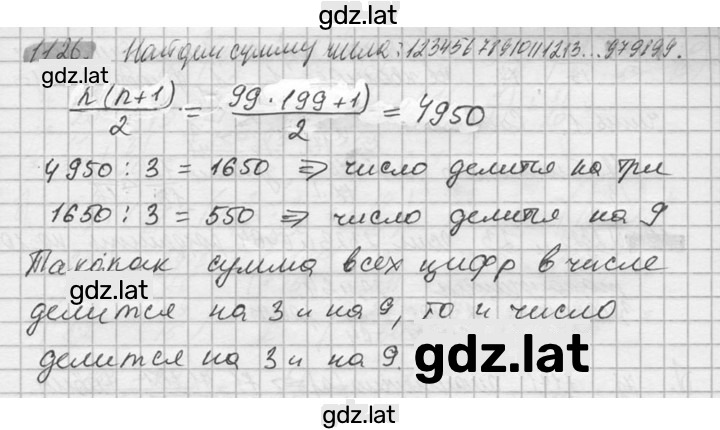 gdz.lat
1126. Найдем сумму числа: 1234567891011213...979899.
gdz.lat
n(n+1)/2 = 99·(99+1)/2 = 4950
4950 : 3 = 1650 ⇒ число делится на три
1650 : 3 = 550 ⇒ число делится на 9
Так как сумма всех цифр в числе
gdz.lat
делится на 3 и на 9, то и число
делится на 3 и на 9.
gdz.lat
gdz.lat